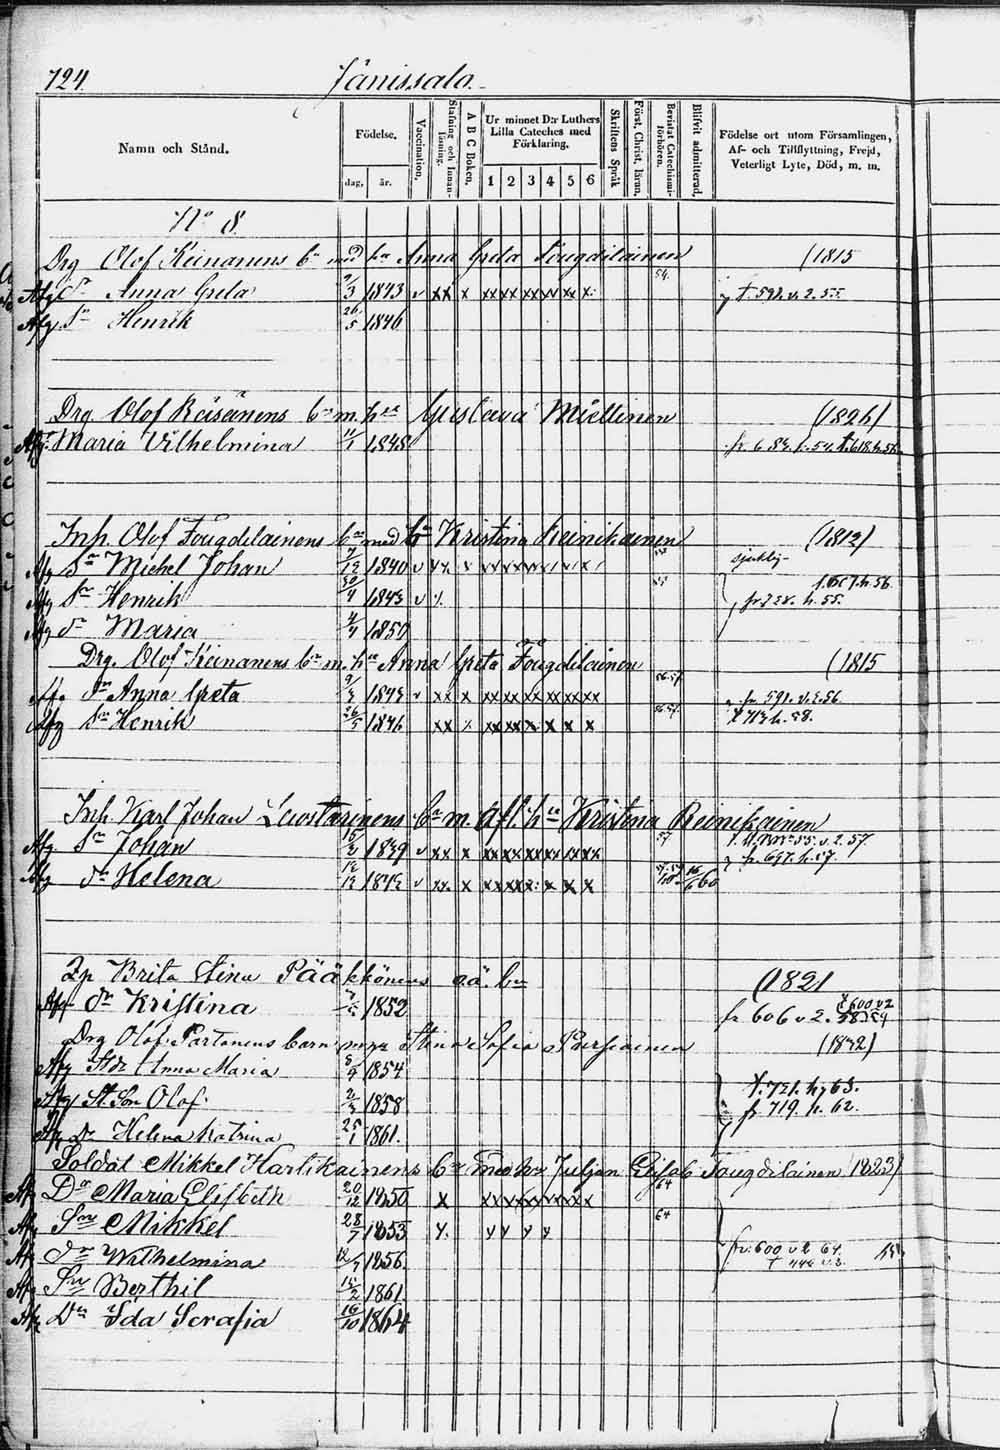 724.
Jänissalo.
Namn och Stånd.
Födelse.
dag,
år.
Vaccination.
Stafning och Innanläsning.
A B C Boken.
Ur minnet D:r Luthers Lilla Cateches med Förklaring.
1 2 3 4 5 6
Skriftens Språk
Först. Christ. läran.
Bevistat Catechismiförhören.
Blifvit admitterad.
Födelse ort utom Församlingen,
Af- och Tillflyttning, Frejd,
Veterligt Lyte, Död, m. m.
No 8.
Drg Olof Keinanens bn med hu Anna Greta Fougdilainen (1815
Afg Dr Anna Greta 9/3 1843 v xx x xx xx xx xx xx x 54. t. 591. v. 2. 55.
Afg Sn Henrik 26/5 1846
Drg Olof Räisänens bn m. hu Gustava Miettinen (1826)
Afg Maria Vilhelmina 11/1 1848 fr. 683. h. 54. t. 618. h. 56.
Inh. Olof Fougdilainens bn med hu Kristina Reinikainen (1812)
Afg Sn Michel Johan 1840 v sjuklig
Afg Sn Henrik 30/4 1843 v x. h. 56.
fr. 728. h. 55.
Afg Dr Maria 1850
Drg. Olof Keinanens bn m. hu Anna Greta Fougdilainen (1815
Afg Dr Anna Greta 9/3 1843 v xx x xx xx xx xx xx xx 56.57. fr. 591. v. 2. 56.
Afg Sn Henrik 26/5 1846 xx x xx xx xx x x x 56.57. t 713 h. 58.
Inh. Karl Johan Laustarinens bn m. afl. hu Kristina Reinikainen
Afg Sn Johan 15/2 1839 v xx x xx xx xx xx xx xx 57 v. 2. 57.
fr. 697. h. 57.
Afg Dr Helena 12/12 1842 v xx. x xx xx x x x 16/6 60
Qp Brita Stina Pääkkönens oä. bn (1821
Afg Dr Kristina 1852 fr 606 v 2. t 600 v 2
Drg Olof Partanens barn m hu Stina Sofia Parsiainen (1832)
Afg Anna Maria 5/9 1854
t. 721. h. 63.
Afg St. Son Olof. 2/3 1858 fr. 719. h. 62.
Afg Dr Helena Katrina 25/1 1861.
Soldat Mikkel Hartikainens bn med hu Juljan Lisab Fougdilainen 1823)
Afg Dr Maria Elisbeth 20/12 1850 x xx xx xx xx xx x 64
Afg Sn Mikkel 28/7 1853 x. y y y y 64
fr. 600 v 2 64.
Afg Dr Wilhelmina 12/4 1856.
Afg Sn Berthil 15/2 1861
Afg Dr Ida Serafia 16/10 1864